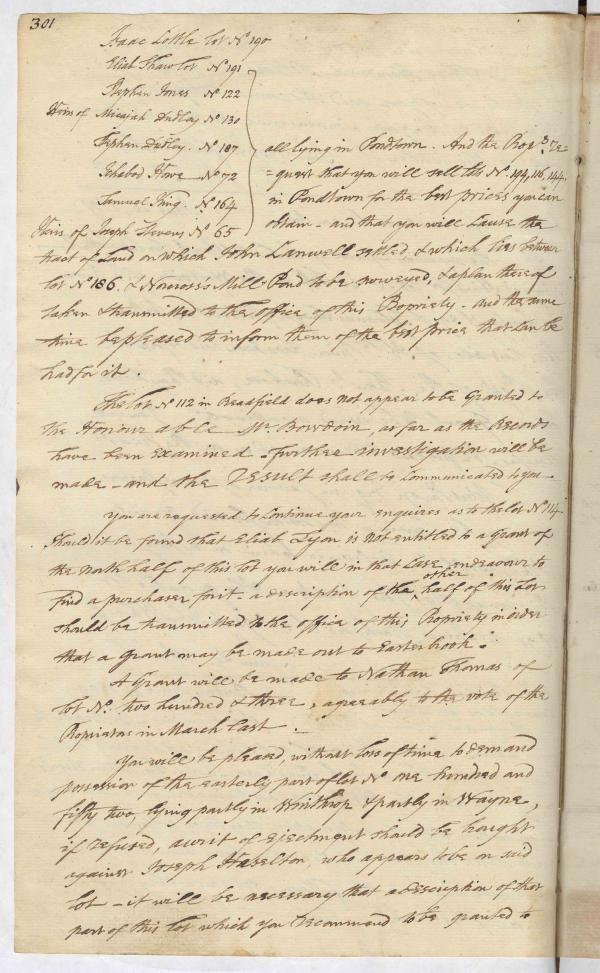 301
Isaac Lottle lot No 190
Eliab Shaw lot No 191
Stephen Jones No 122
Heirs of Micajah Dudley No 130
Stephen Dudley No 187
Ichabod Howe No 72
Samuel King No 164
Heirs of Joseph Stevens No 65
all lying in Pondtown. And the Proprs. re=
=quest that you will sell lots No. 194, 116, 144
in Pondtown for the best prices you can
obtain - and that you will Cause the
tract of Land on which John Lanwell setled & which lies between
lot No 186. & Norcross's Mill-Pond to be surveyed, & a plan thereof
taken & transmitted to the office of this Propriety. and the same
time be pleased to inform them of the best price that can be
had for it.
The lot No 112 in Readfield does not appear to be Granted to
the Honourable Mr. Bowdoin, as far as the Records
have been examined. further investigation will be
made - and the result shall be communicated to you -
You are requested to Continue your enquires as to the lot No 114
Should it be found that Eliab Lyon is not entitled to a Grant of
the north half of this lot you will in that Case endeavour to
find a purchaser for it - a description of the other half of this Lot
should be transmitted to the office of this Propriety in order
that a Grant may be made out to Easterbrook.
A Grant will be made to Nathan Thomas of
lot No. two hundred & three, agreably to the vote of the
Proprietors in March last. -
You will be pleased, without loss of time to demand
possession of the easterly part of lot No one hundred and
fifty two, lying partly in Winthrop & partly in Wayne,
if refused, a writ of ejectment should be brought
against Joseph Haselton, who appears to be on said
lot - it will be necessary that a description of that
part of this lot which you recommend to be granted to